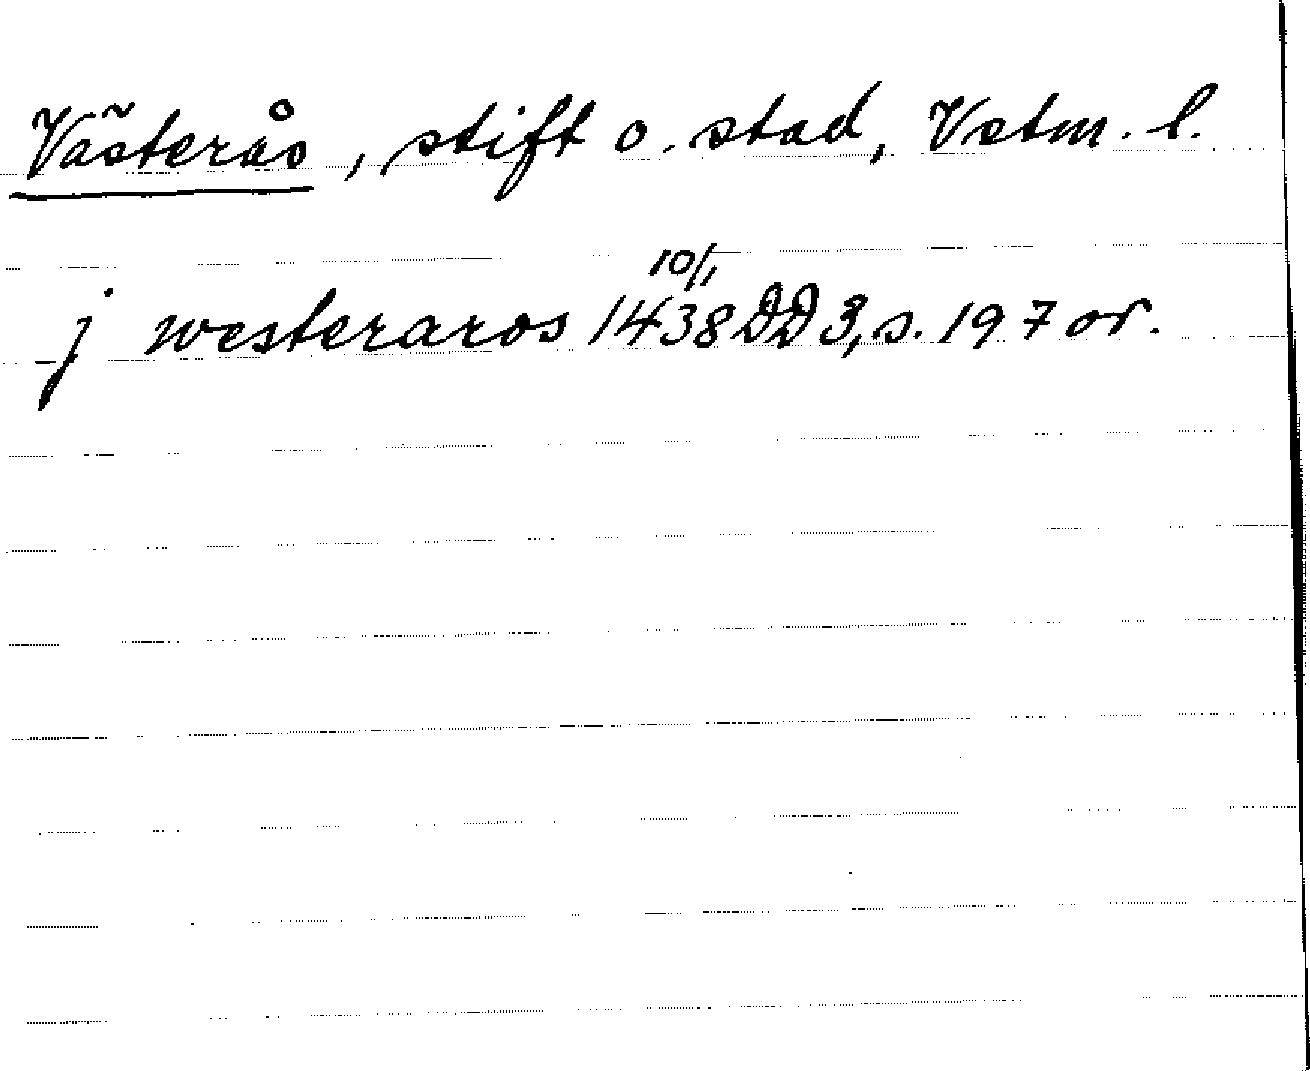 Västerås, stift o. stad, Vstm. l.
j westeraros 10/1 1438 DD 3, s. 197 or.